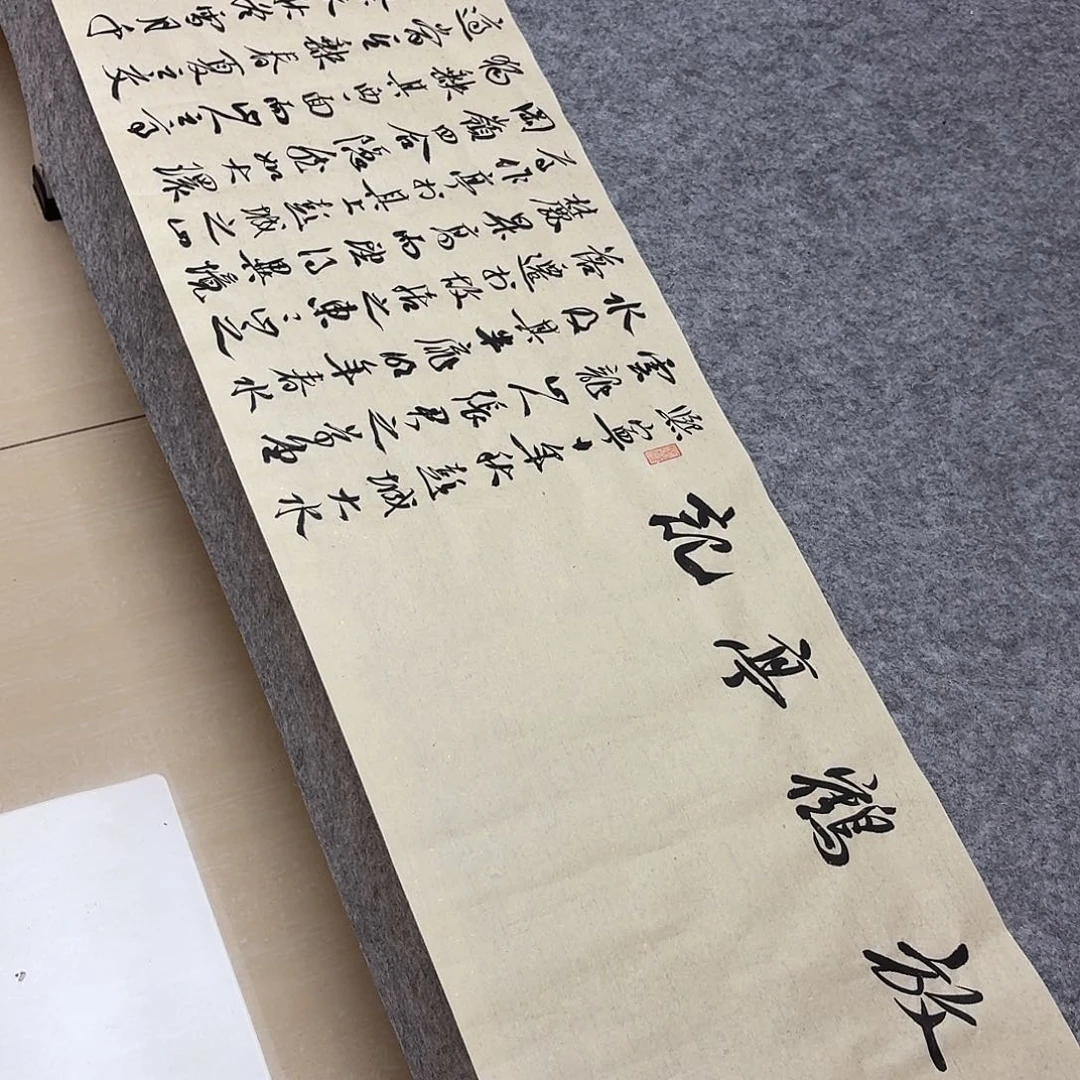 放鶴亭記
熙寧十年秋彭城大水
雲龍山人張君之草堂
水及其半扉明年春水
落遷於故居之東〻山之
麓昇高而望得異境
焉作亭於其上彭城之山
岡嶺四合隱然如大環
獨缺其西面而山人之亭
適當其缺春夏之交
秋冬雪月千